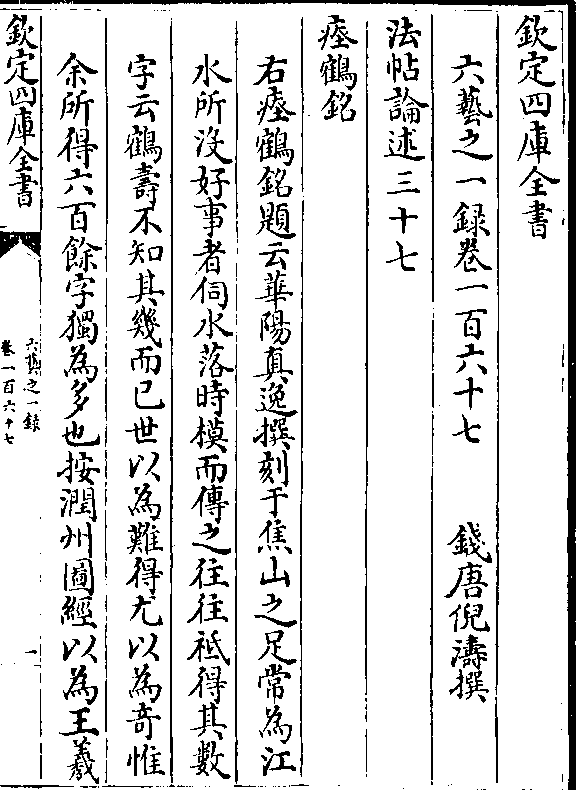 欽定四庫全書
六藝之一録卷一百六十七　錢唐倪濤撰
法帖論述三十七
瘞鶴銘
右瘞鶴銘題云華陽真逸撰刻于焦山之足常為江
水所没好事者伺水落時模而傳之往往祗得其數
字云鶴壽不知其幾而已世以為難得尤以為奇惟
余所得六百餘字獨為多也按潤州圖經以為王羲
欽定四庫全書
六藝之一録
卷一百六十七
一